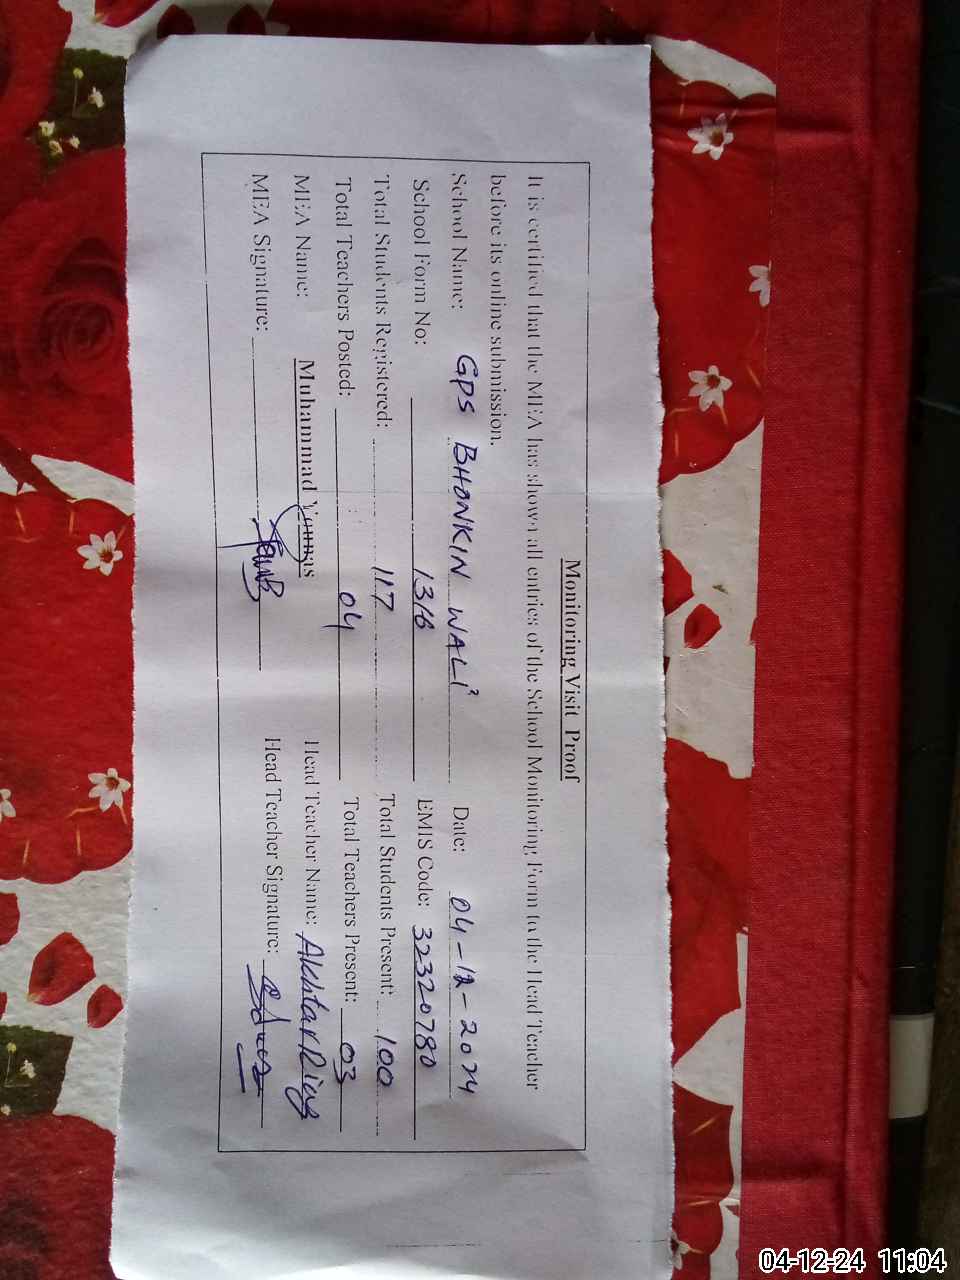 Monitoring Visit Proof
It is certified that the MEA has shown all entries of the School Monitoring Form to the Head Teacher
before its online submission.
School Name: GPS BHONKIN WALI Date: 04-12-2024
School Form No: 1316 EMIS Code: 32320780
Total Students Registered: 117 Total Students Present: 100
Total Teachers Posted: 04 Total Teachers Present: 03
MEA Name: Muhammad Younas Head Teacher Name: Akhtar
MEA Signature: Head Teacher Signature:
04-12-24 11:04